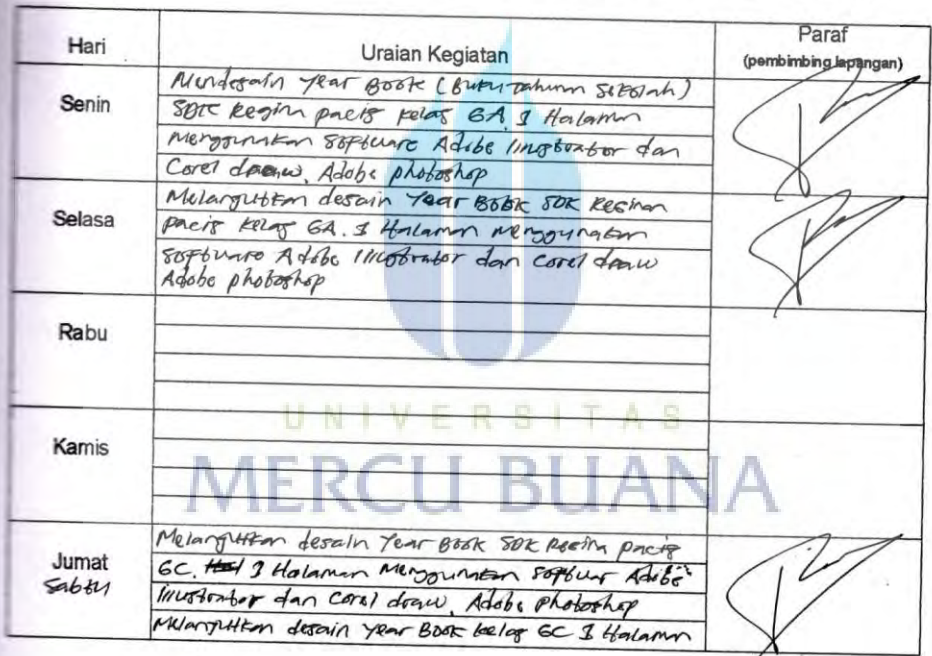 Hari Uraian Kegiatan Paraf
(pembimbing lapangan)
Senin
Mendesain Year Book (Buku tahunan Sekolah)
SDK Regina pacis kelas 6A. 1 Halaman
Menggunakan Software Adobe illustrator dan
Corel draw, Adobe photoshop
Selasa
Melanjutkan desain Year Book SDK Regina
pacis kelas 6A. 1 Halaman menggunakan
software Adobe illustrator dan Corel draw
Adobe photoshop
Rabu
UNIVERSITAS
Kamis
MERCU BUANA
Jumat
Sabtu
Melanjutkan desain Year Book SDK Regina pacis
6C. 1 Halaman Menggunakan softwar Adobe
illustrator dan Corel draw, Adobe Photoshop
Melanjutkan desain Year Book kelas 6C 1 Halaman